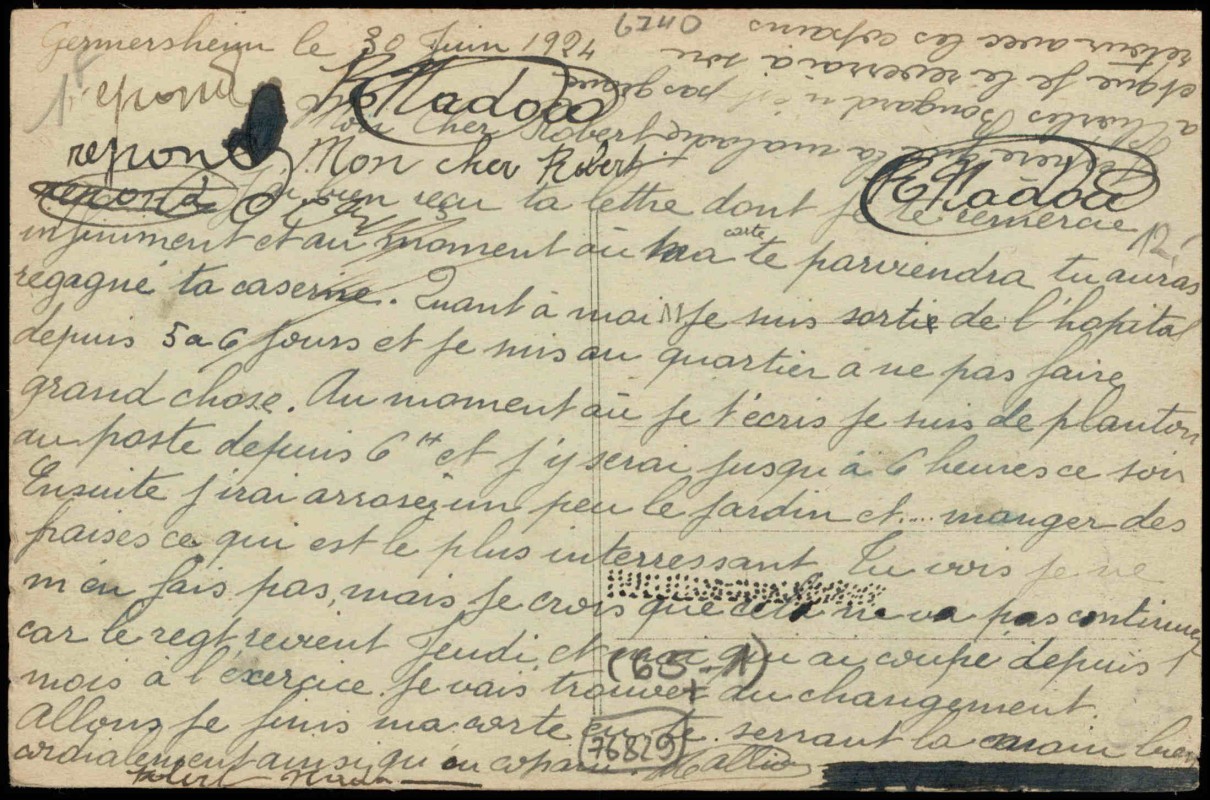 Germersheim le 30 Juin 1924
6740
repond
Mon cher Robert
repond
Mon cher Robert
repond
J'ai bien reçu ta lettre dont je te remercie
12
infiniment et au moment où ma carte te parviendra tu auras
regagné ta caserne. Quant à moi je suis sortie de l'hopital
depuis 5 a 6 jours et je suis au quartier a ne pas faire
grand chose. Au moment où je t'écris je suis de planton
au poste depuis 6 H et j'y serai jusqu'à 6 heures ce soir
Ensuite j'irai arroser un peu le jardin et.... manger des
fraises ce qui est le plus interressant. Tu vois je ne
m'en fais pas, mais je crois que cela ne va pas continuer
car le regt revient Jeudi, et moi qui ai coupé depuis 1
mois à l'exercice je vais trouver du changement.
(65-1)
Allons je finis ma carte en te serrant la main bien
76829
cordialement ainsi qu'au copain.
J'espère que la maladie
a Charles Bougard n'est pas grave
et que je le reverrai a son
retour avec les copains